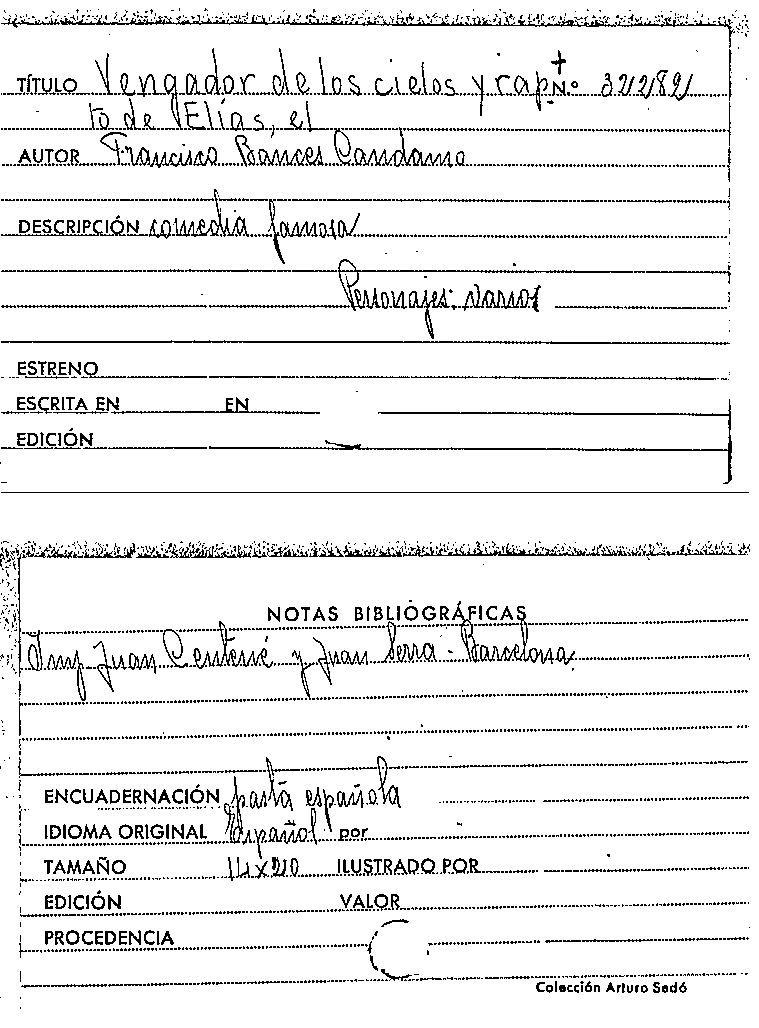 TÍTULO Vengador de los cielos y rap- Nº 32282
to de Elías, el
AUTOR Francisco Bances Candamo
DESCRIPCIÓN comedia famosa
Personajes: varios
ESTRENO
ESCRITA EN EN
EDICIÓN
NOTAS BIBLIOGRÁFICAS
Imp Juan Centené y Juan Serra - Barcelona
ENCUADERNACIÓN pasta española
IDIOMA ORIGINAL Español por
TAMAÑO 14x20 ILUSTRADO POR
EDICIÓN VALOR
PROCEDENCIA
Colección Arturo Sedó